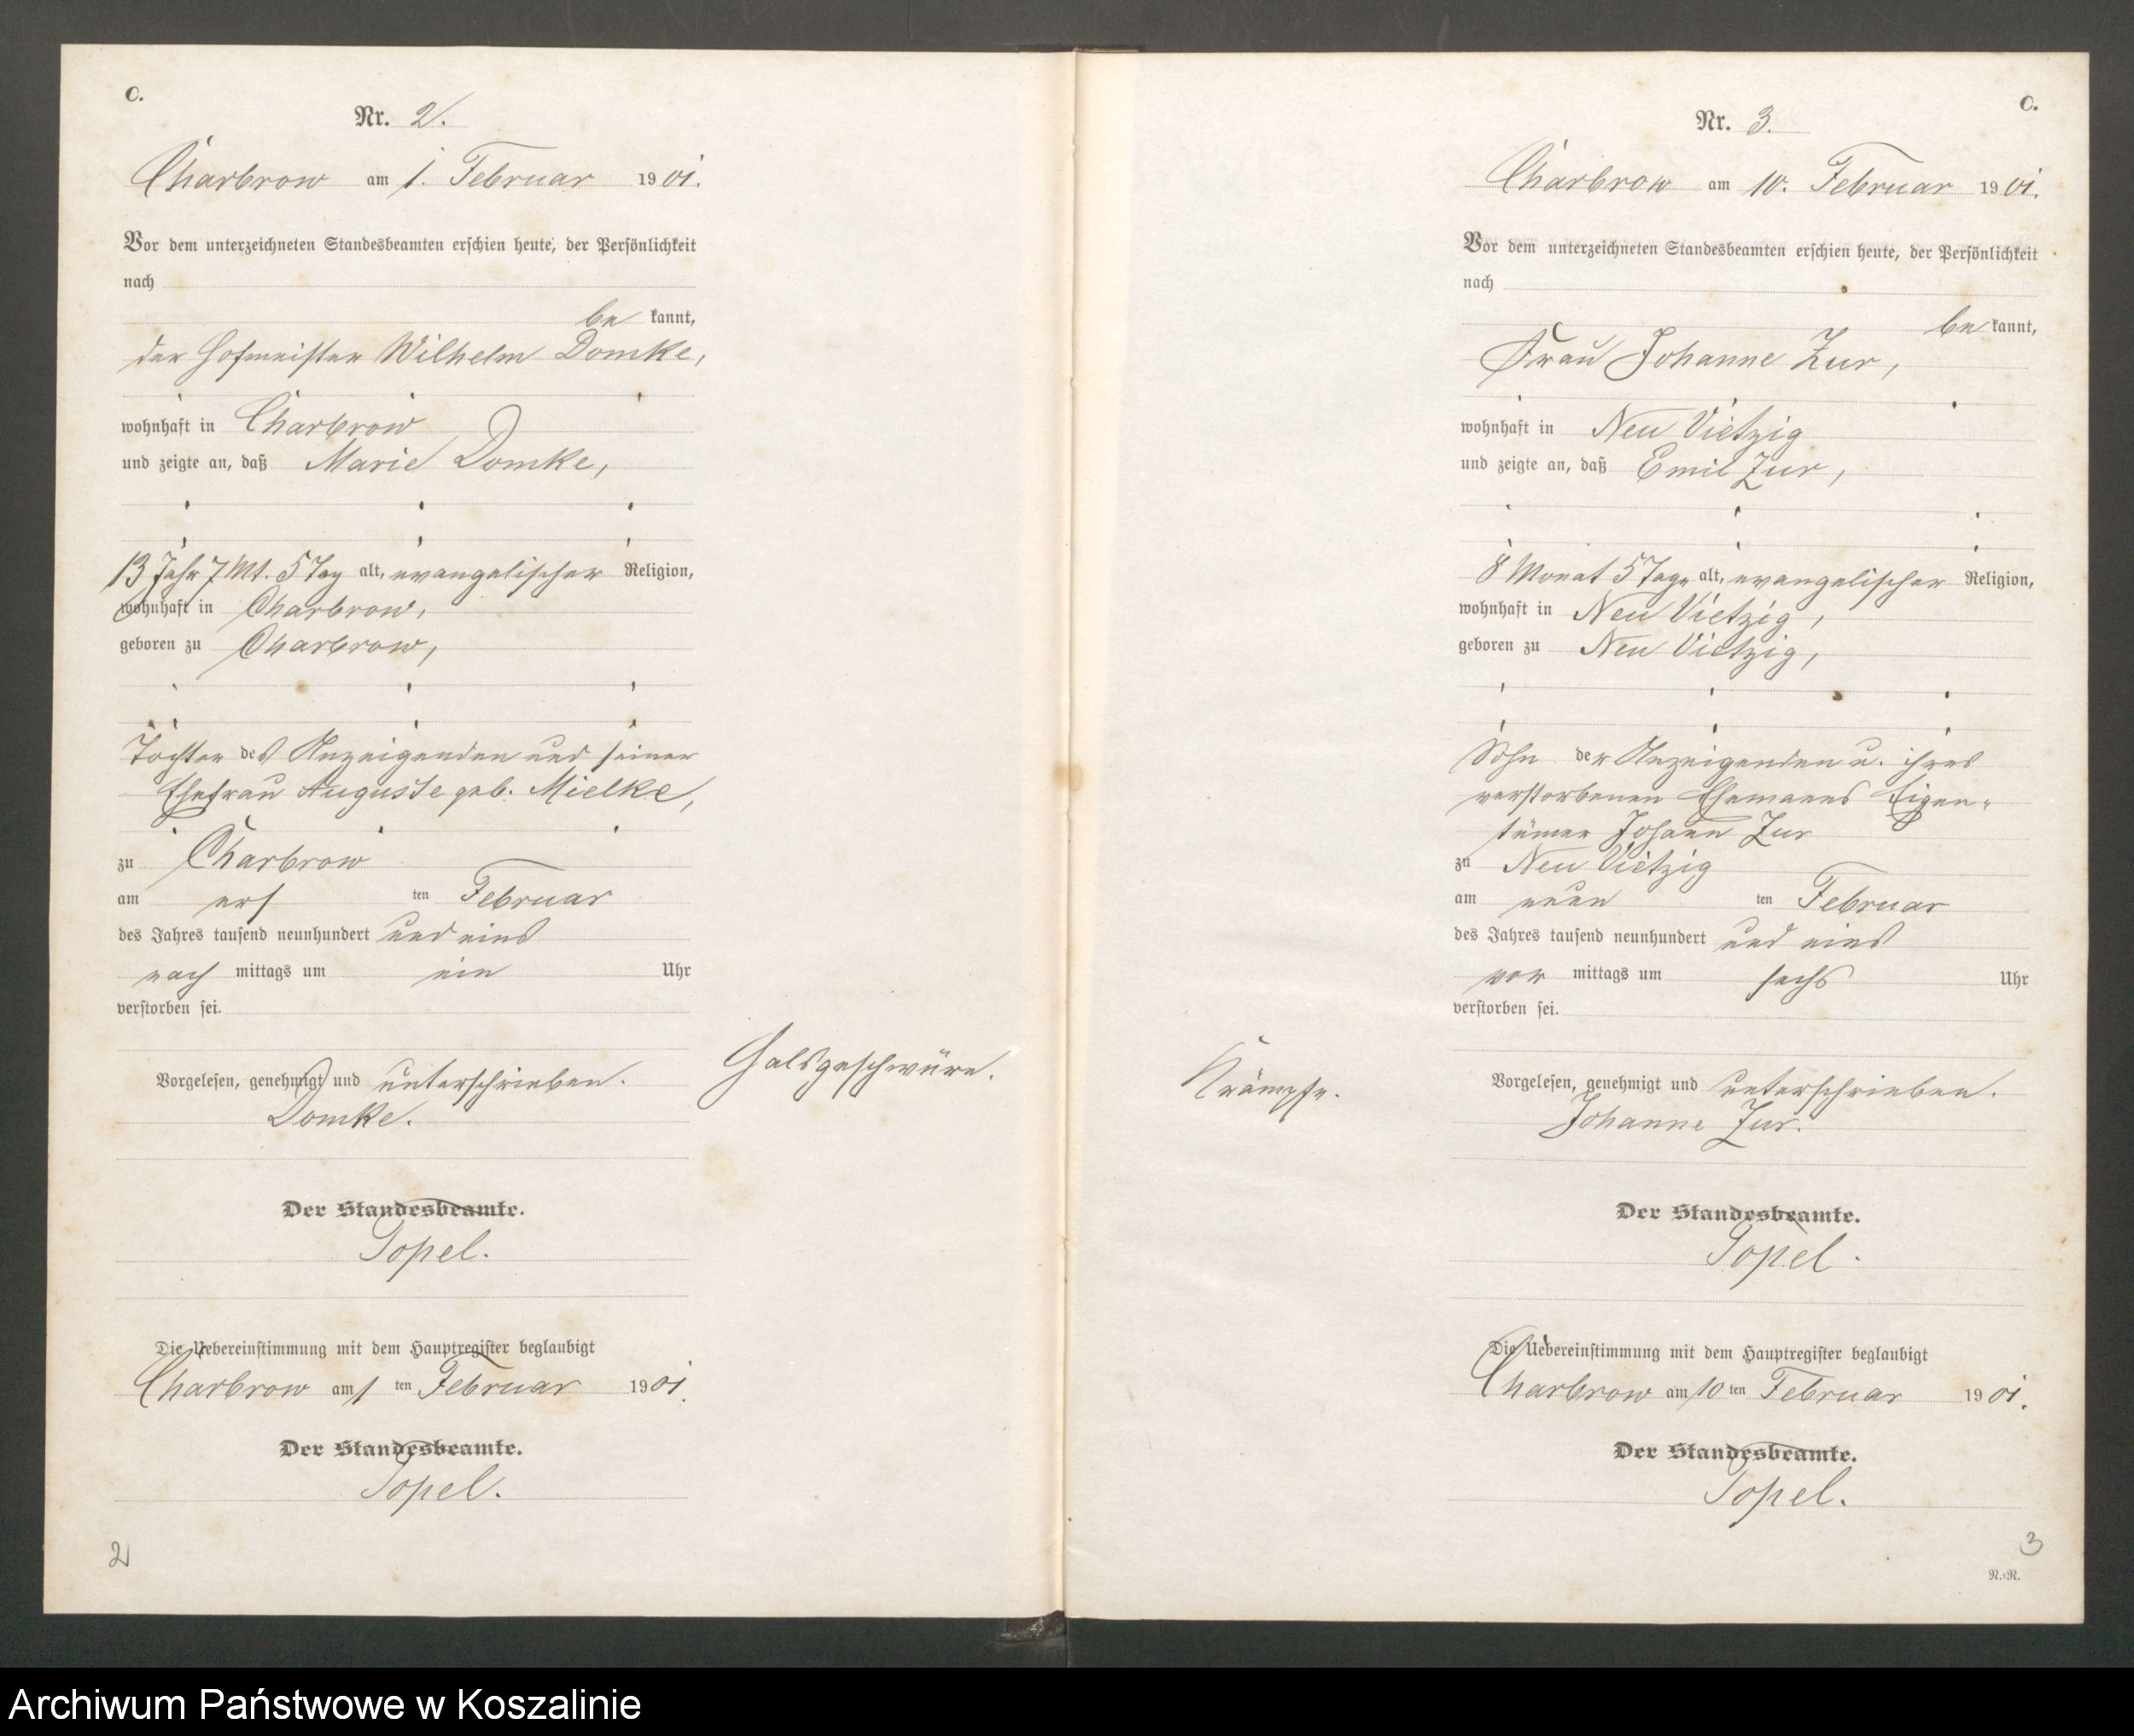 C.
Nr. 2.
Charbrow am 1. Februar 1901.
Vor dem unterzeichneten Standesbeamten erschien heute, der Persönlichkeit
nach
be kannt,
der Hofmeister Wilhelm Domke,
wohnhaft in Charbrow
und zeigte an, daß Marie Domke,
13 Jahr 7 Mt. 5 Tag alt, evangelischer Religion,
wohnhaft in Charbrow,
geboren zu Charbrow,
Tochter des Anzeigenden und seiner
Ehefrau Auguste geb. Mielke,
zu Charbrow
am erst ten Februar
des Jahres tausend neunhundert und eins
nach mittags um ein Uhr
verstorben sei.
Vorgelesen, genehmigt und unterschrieben.
Domke.
Halsgeschwüre.
Der Standesbeamte.
Sopel.
Die Uebereinstimmung mit dem Hauptregister beglaubigt
Charbrow am 1 ten Februar 1901.
Der Standesbeamte.
Sopel.
2
C.
Nr. 3.
Charbrow am 10. Februar 1901.
Vor dem unterzeichneten Standesbeamten erschien heute, der Persönlichkeit
nach
be kannt,
Frau Johanne Zur,
wohnhaft in Neu Vietzig
und zeigte an, daß Emil Zur,
8 Monat 5 Tage alt, evangelischer Religion,
wohnhaft in Neu Vietzig,
geboren zu Neu Vietzig,
Sohn der Anzeigenden u. ihres
verstorbenen Ehemanns Eigen-
tümer Johann Zur
zu Neu Vietzig
am neun ten Februar
des Jahres tausend neunhundert und eins
vor mittags um sechs Uhr
verstorben sei.
Krämpfe.
Vorgelesen, genehmigt und unterschrieben.
Johanne Zur.
Der Standesbeamte.
Sopel.
Die Uebereinstimmung mit dem Hauptregister beglaubigt
Charbrow am 10 ten Februar 1901.
Der Standesbeamte.
Sopel.
3
N.-N.
Archiwum Państwowe w Koszalinie